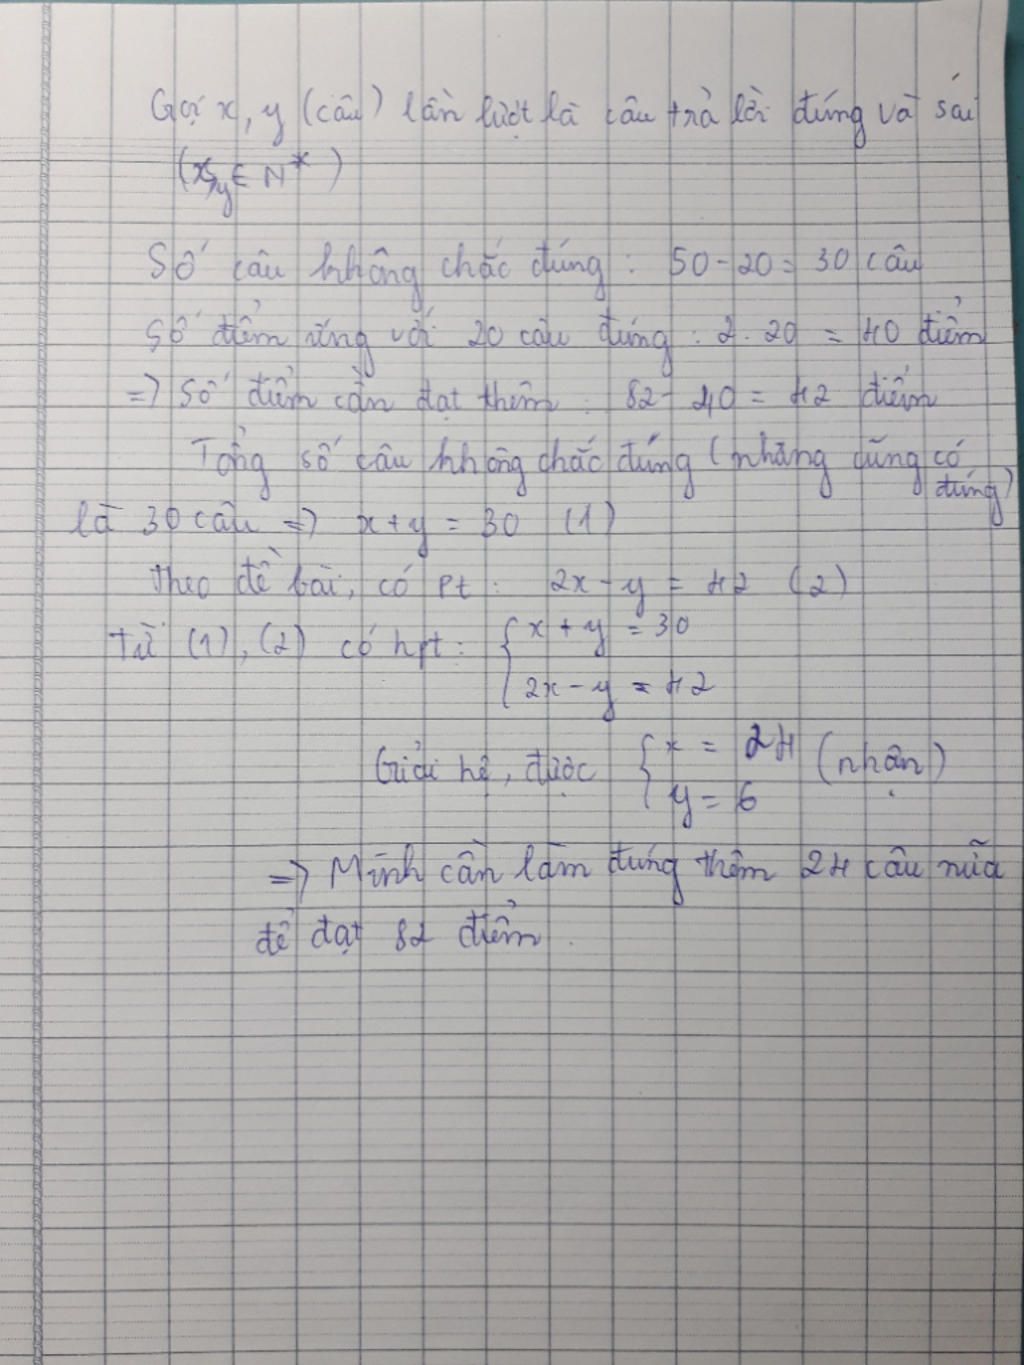 Gọi x, y (câu) lần lượt là câu trả lời đúng và sai
(x,y ∈ N*)
Số câu không chắc đúng : 50 - 20 = 30 câu
Số điểm ứng với 20 câu đúng : 2 . 20 = 40 điểm
=> Số điểm cần đạt thêm : 82 - 40 = 42 điểm
Tổng số câu không chắc đúng (nhưng cũng có đúng)
là 30 câu => x + y = 30 (1)
Theo đề bài, có pt : 2x - y = 42 (2)
Từ (1), (2) có hpt : { x + y = 30
2x - y = 42
Giải hệ, được { x = 24 (nhận)
y = 6
=> Minh cần làm đúng thêm 24 câu nữa
để đạt 82 điểm.